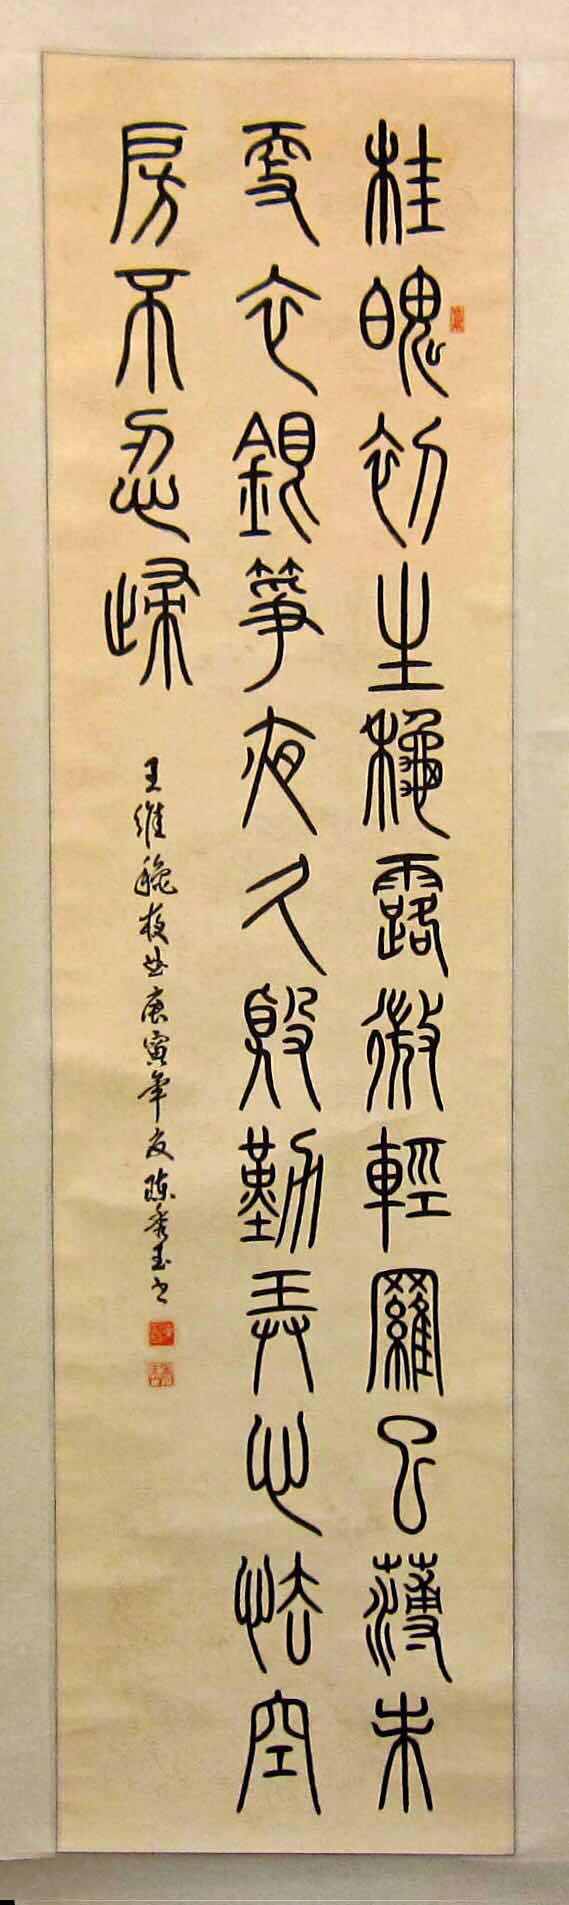 桂魄初生秋露微輕羅已薄未
更衣銀箏夜久殷勤弄心怯空
房不忍歸
王維秋夜曲庚寅年夏陳秀玉書